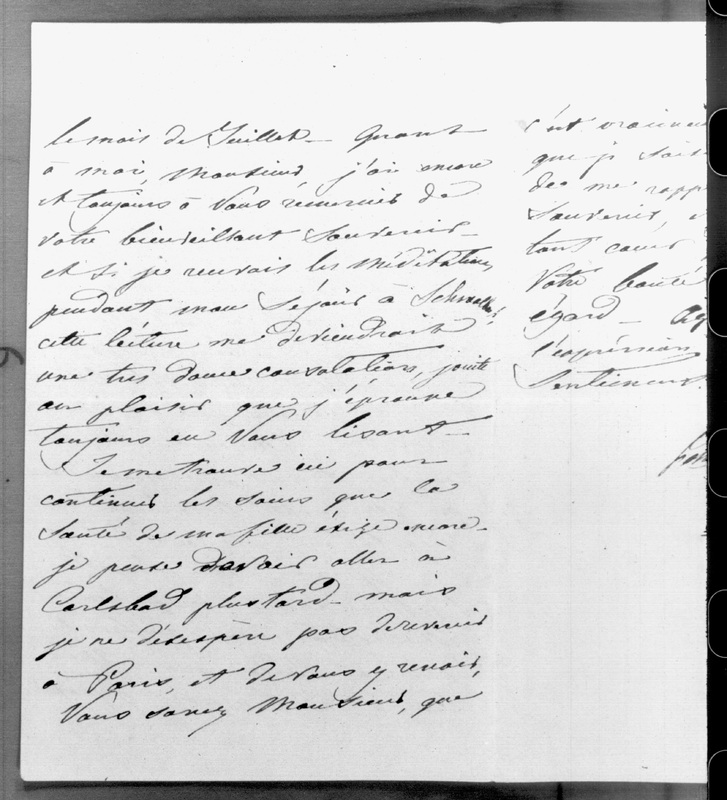 le mois de Juillet_ Quant
à moi, Monsieur j'ai encore
et toujours à Vous remercier de
votre bienveillant souvenir_
et si je recevais les Méditations,
pendant mon séjour à
cette lecture me deviendrait
une très douce consolation, jointe
au plaisir que j'éprouve
toujours en Vous lisant_
Je me trouve ici pour
continuer les soins que la
santé de ma fille éxige encore_
je pense devoir aller à
Carlsbad plus tard_ mais
je ne désespère pas de revenir
à Paris, et de vous y revoir,
Vous savez Monsieur, que
c'est
que je
de me
souvenir,
tant
Votre bonté
égard_
l'expression
sentiments